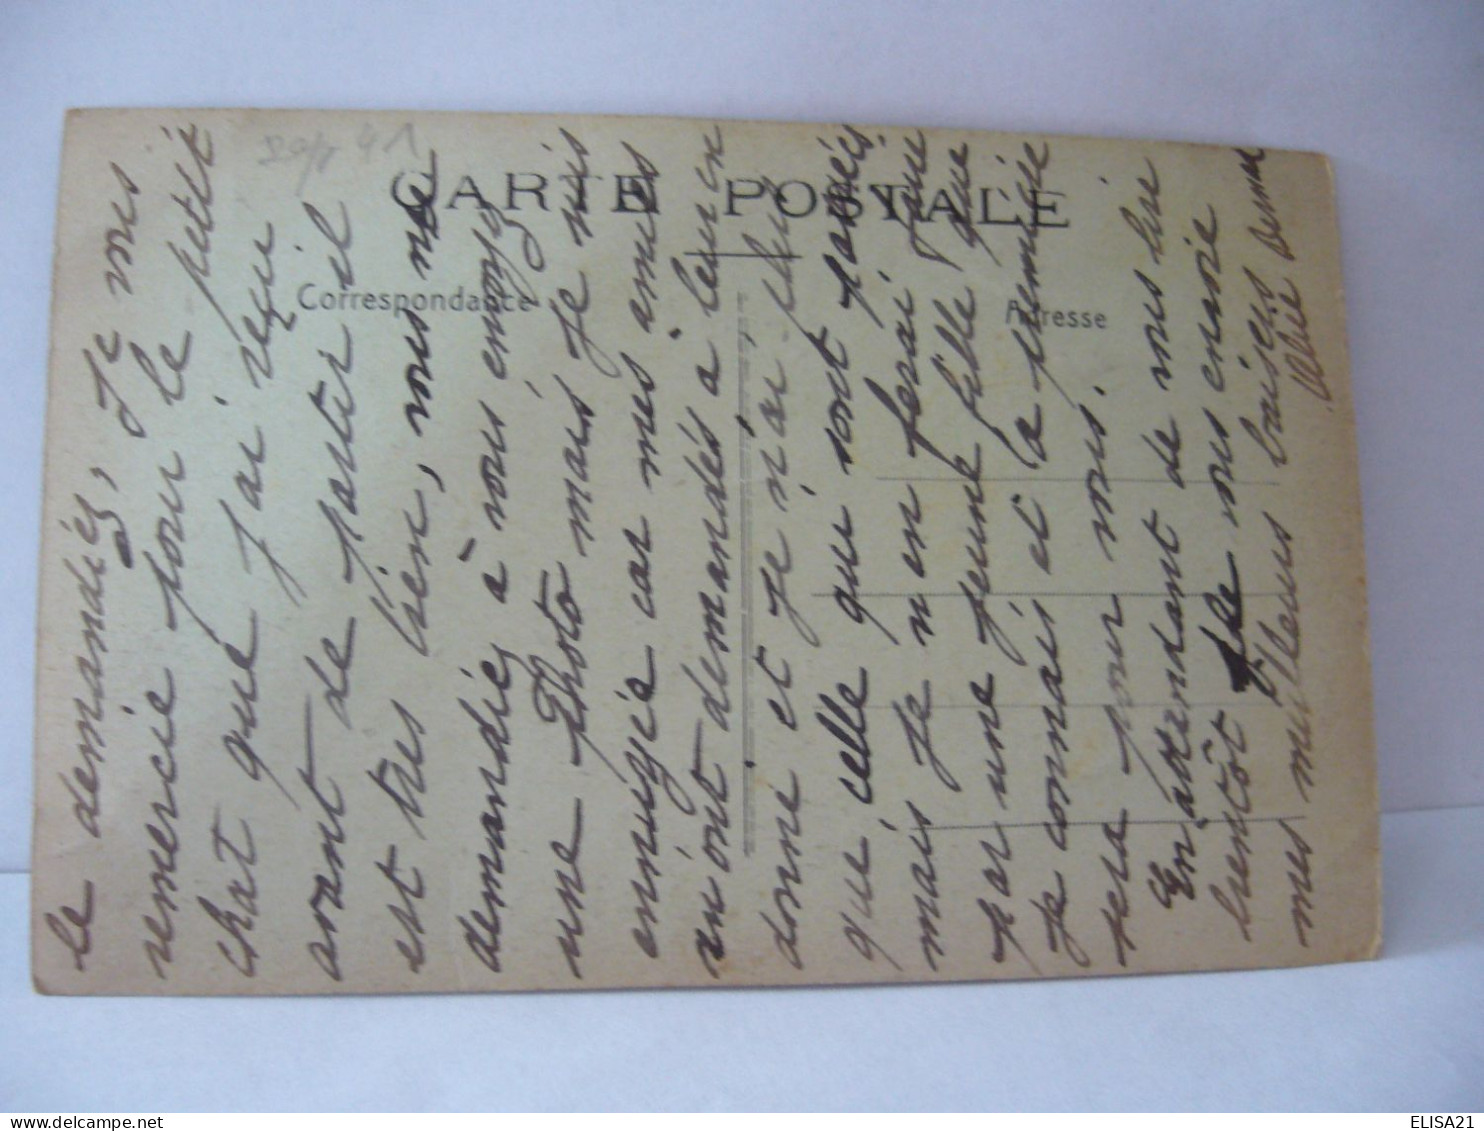 CARTE POSTALE
Correspondance
Adresse
le demandiéz, Je vous
remercie pour le petit
chat que j'ai reçu
avant de partir il
est très bien, vous me
demandiéz à vous envoyéz
une Photo mais je suis
ennuyée car mes amies
m'ont demandés à leur en
donné et je n'ai plus
que celle qui sont
mais je n'en ferai faire
par une jeune fille que
je connais et la première
sera pour vous.
En attendant de vous lire
bientôt je vous envoie
mes meilleurs baisers
ELISA21